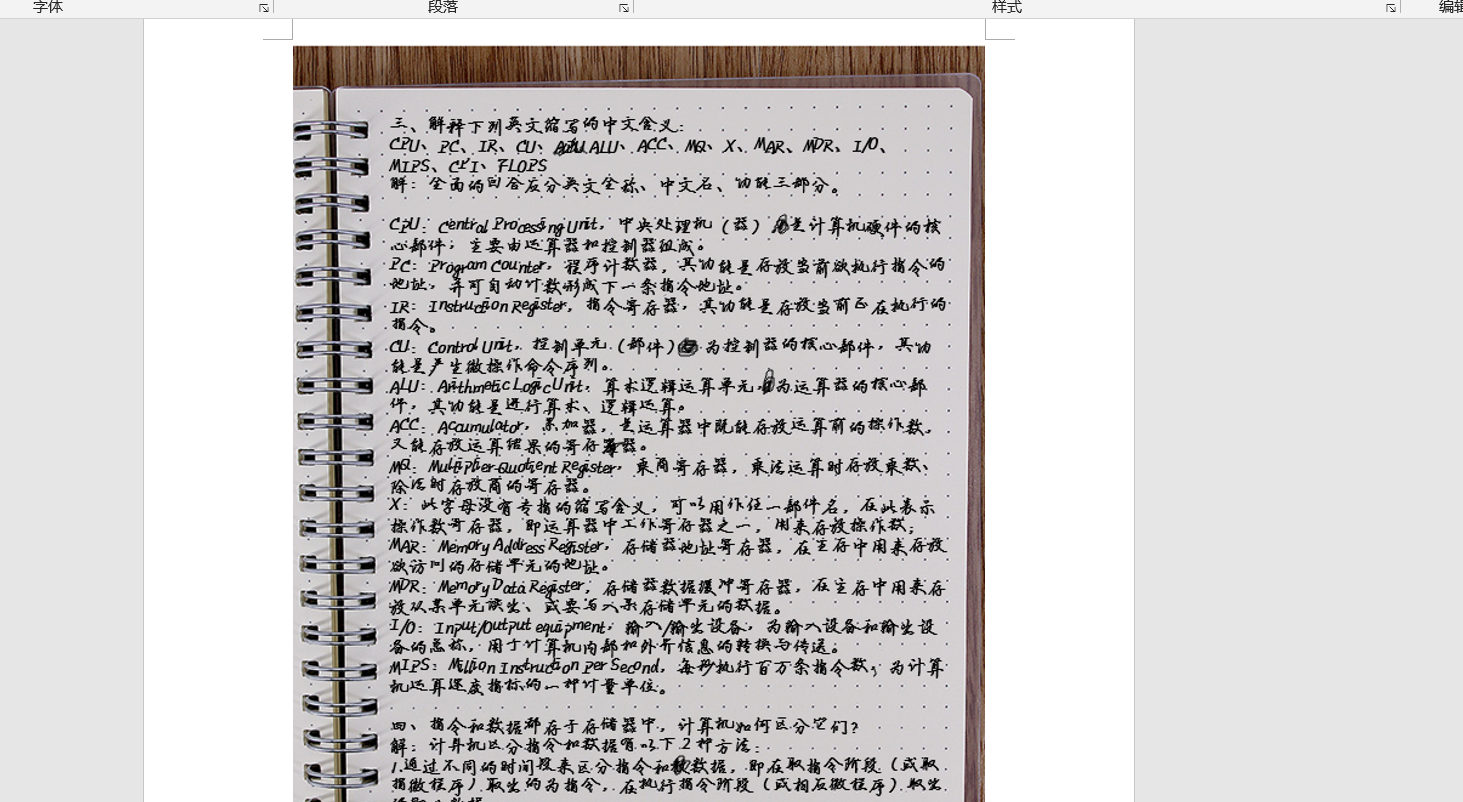 字体
段落
样式
编辑
三、解释下列英文缩写的中文含义:
CPU、PC、IR、CU、ALU、ACC、MQ、X、MAR、MDR、I/O、
MIPS、CPI、FLOPS
解: 全面的回答应分英文全称、中文名、功能三部分。
CPU: Central Processing Unit, 中央处理机 (器) 是计算机硬件的核
心部件; 主要由运算器和控制器组成。
PC: Program Counter, 程序计数器, 其功能是存放当前欲执行指令的
地址, 并可自动计数形成下一条指令地址。
IR: Instruction Register, 指令寄存器, 其功能是存放当前正在执行的
指令。
CU: Control Unit, 控制单元 (部件) 为控制器的核心部件, 其功
能是产生微操作命令序列。
ALU: Arithmetic Logic Unit, 算术逻辑运算单元, 为运算器的核心部
件, 其功能是进行算术、逻辑运算。
ACC: Accumulator, 累加器, 是运算器中既能存放运算前的操作数,
又能存放运算结果的寄存器。
MQ: Multiplier-Quotient Register, 乘商寄存器, 乘法运算时存放乘数、
除法时存放商的寄存器。
X: 此字母没有专指的缩写含义, 可以用作任一部件名, 在此表示
操作数寄存器, 即运算器中工作寄存器之一, 用来存放操作数;
MAR: Memory Address Register, 存储器地址寄存器, 在主存中用来存放
欲访问的存储单元的地址。
MDR: Memory Data Register, 存储器数据缓冲寄存器, 在主存中用来存
放从某单元读出、或要写入某存储单元的数据。
I/O: Input/Output equipment, 输入/输出设备, 为输入设备和输出设
备的总称, 用于计算机内部和外界信息的转换与传送。
MIPS: Million Instruction Per Second, 每秒执行百万条指令数, 为计算
机运算速度指标的一种计量单位。
四、指令和数据都存于存储器中, 计算机如何区分它们?
解: 计算机区分指令和数据有以下2种方法:
1.通过不同的时间段来区分指令和数据, 即在取指令阶段 (或取
指微程序) 取出的为指令, 在执行指令阶段 (或相应微程序) 取出